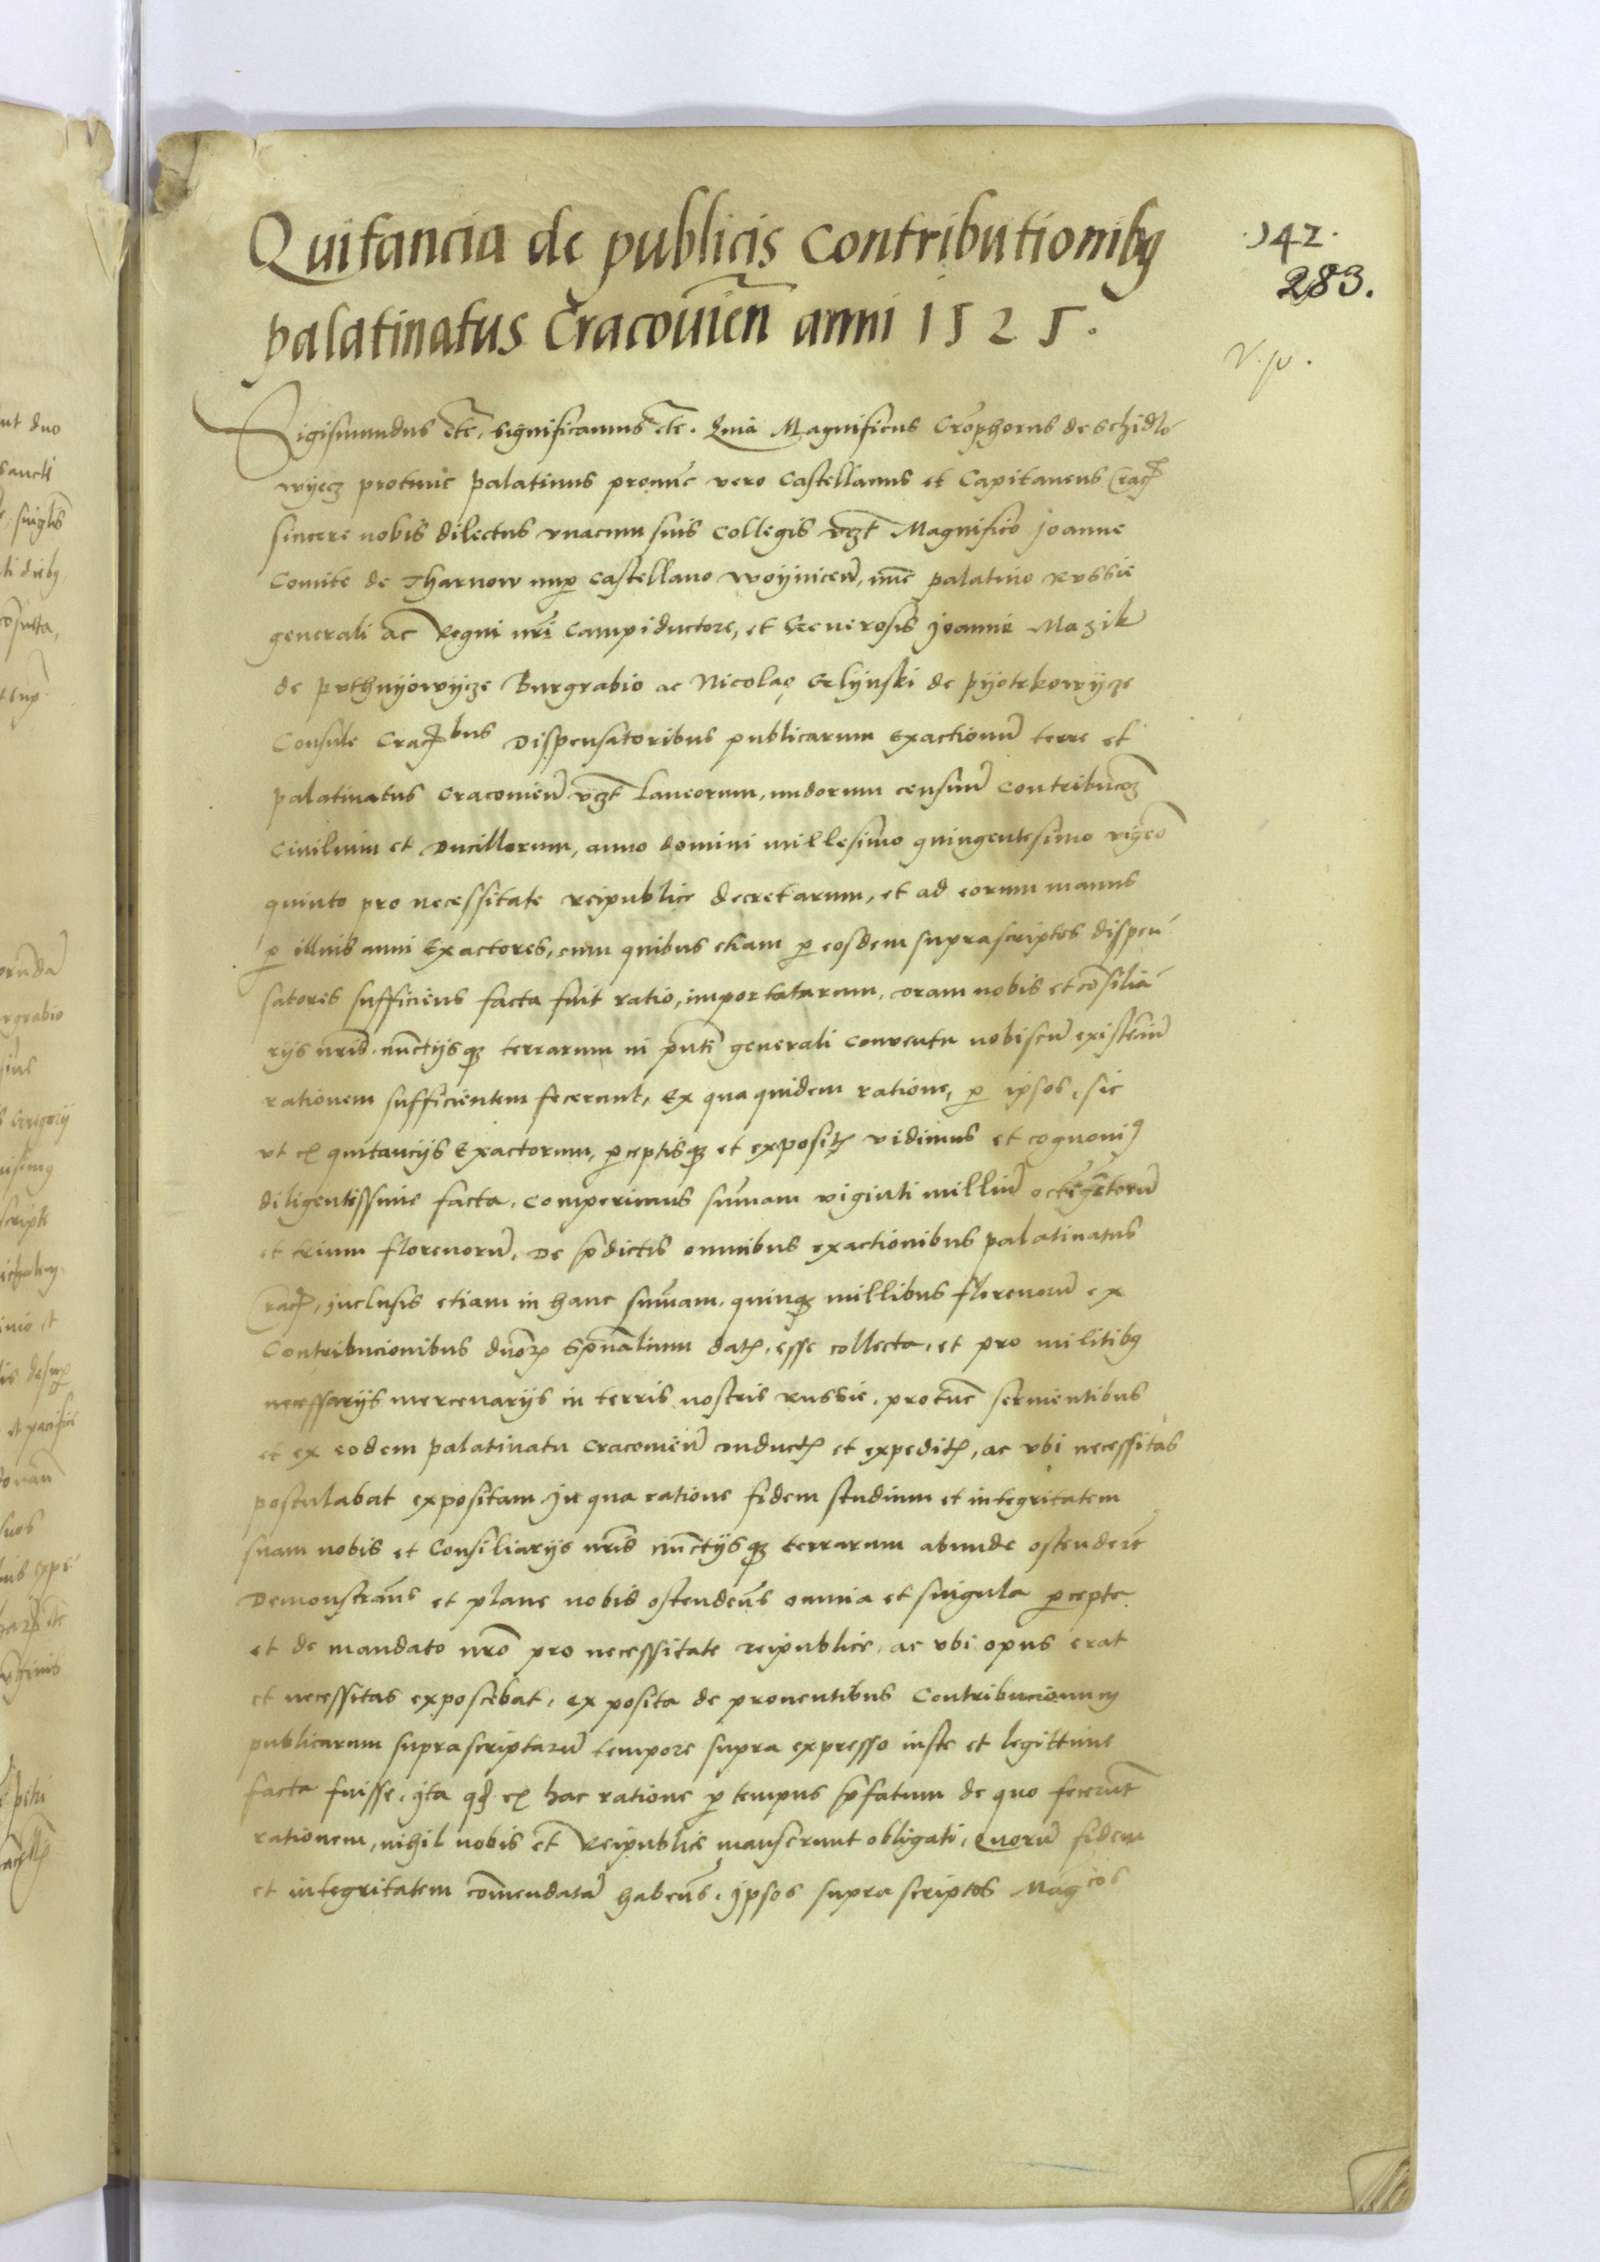 Quitancia de publicis contributionibꝯ
palatinatus Cracouien̄ anni 1525.
.142.
283.
Sigismundus etc̄. significamus etc̄. Quia Magnificus Cr̄ophorus de Schidlo
wyecz protunc palatinus pronūc vero Castellanus et Capitaneus Crac̄
sincere nobis dilectus vnacum suis Collegis vꝫt Magnifico Joanne
Comite de Tharnow nuꝑ Castellano woynicen̄, nūc palatino Russie
generali ac Regni nr̄i Campiductore, et Generosis Joanne Mazik
de pvthnyowycze Burgrabio ac Nicolao Gelynski de pyotrkowycze
Consule Crac̄bus Dispensatoribus publicarum exactionū terre et
palatinatus Cracouien̄ vꝫt laneorum, nudorum censuū Contribucoꝫ
Ciuilium et Ducillorum, anno domini millesimo quingentesimo vigeō
quinto pro necessitate reipublice decretarum, et ad eorum manus
ꝑ illius anni Exactores, cum quibus etiam ꝑ eosdem suprascriptos dispen
satores sufficiens facta fuit ratio, importatarum, coram nobis et cōsilia
rijs nr̄is nūctijsqꝫ terrarum in pn̄ti generali conuentu nobiscū existeñ
rationem sufficientem fecerunt, Ex qua quidem ratione, ꝑ ipsos, sic
vt ex quitancijs Exactorum, ꝑceptisqꝫ et expositꝭ vidimus et cognouiꝯ
diligentissime facta, comperimus sum̄am viginti milliū octigētorū
et trium florenorū, de p̄dictis omnibus exactionibus palatinatus
Crac̄, inclusis etiam in hanc sum̄am, quinqꝫ millibus florenorū ex
Contribucionibus duōꝝ Sp̄ualium datꝭ, esse collecta, et pro militibꝯ
necessarijs mercenarijs in terris nostris russie, protūc seruientibus
et ex eodem palatinatu Cracouien̄ conductꝭ et expeditꝭ, ac vbi necessitas
postulabat expositam In qua ratione fidem studium et integritatem
suam nobis et Consiliarijs nr̄is nūctijsqꝫ terrarum abunde ostenderūt
Demonstran̄s et plane nobis ostenden̄s omnia et singula ꝑcepta
et de mandato nr̄o pro necessitate reipublice, ac vbi opus erat
et necessitas exposcebat, exposita de prouentibus Contribucionum
publicarum suprascriptarū tempore supra expresso iuste et legittime
facta fuisse, ita qd̄ ex hac ratione ꝑ tempus p̄fatum de quo fecerūt
rationem, nihil nobis et Reipublice manserunt obligati, Quorū fidem
et integritatem com̄endatā haben̄s, Ipsos supra scriptos Magcos